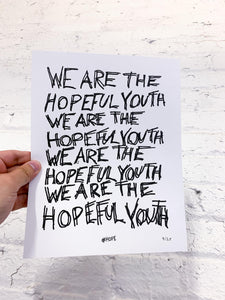 WE ARE THE
HOPEFUL YOUTH
WE ARE THE
HOPEFUL YOUTH
WE ARE THE
HOPEFUL YOUTH
WE ARE THE
HOPEFUL YOUTH